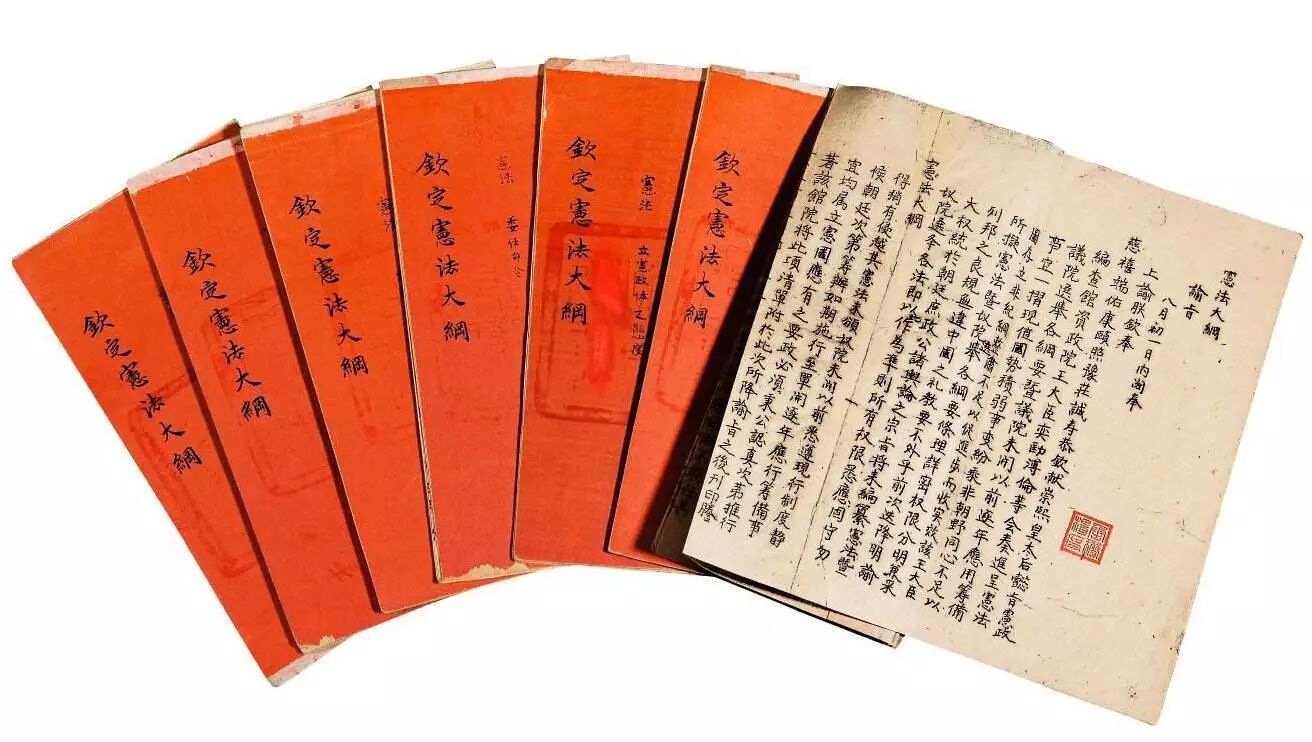 欽定憲法大綱
欽定憲法大綱
欽定憲法大綱
欽定憲法大綱
憲法
欽定憲法大綱
憲法
欽定憲法大綱
憲法大綱
諭旨
八月初一日內閣奉
上諭朕欽奉
慈禧端佑康頤照豫莊誠寿恭欽献崇熙皇太后懿旨憲政
編查館資政院王大臣奕劻溥倫等会奏進呈憲法
議院選举各綱要暨議院未開以前逐年應用籌備
事宜一摺現值國勢積弱事變紛乘非朝野同心不足以
圖存立非紀綱整肅不足以促進步而收实效該王大臣
所擬憲法暨议院選举各綱要條理詳密權限分明兼采
列邦之良規無違中國之礼教要不外乎前次迭降明諭
大权統於朝廷庶政公諸輿論之宗旨將来編纂憲法暨
议院選举各法即以作為準則所有权限悉應固守勿
得稍有侵越其憲法未頒议院未開以前悉遵現行制度静
候朝廷次第籌辦如期施行至單開逐年應行籌備事
宜均属立憲國應有之要政必須秉公認真次第推行
著該館院將此項清單附於此次所降諭旨之後刊印謄
憲法大綱